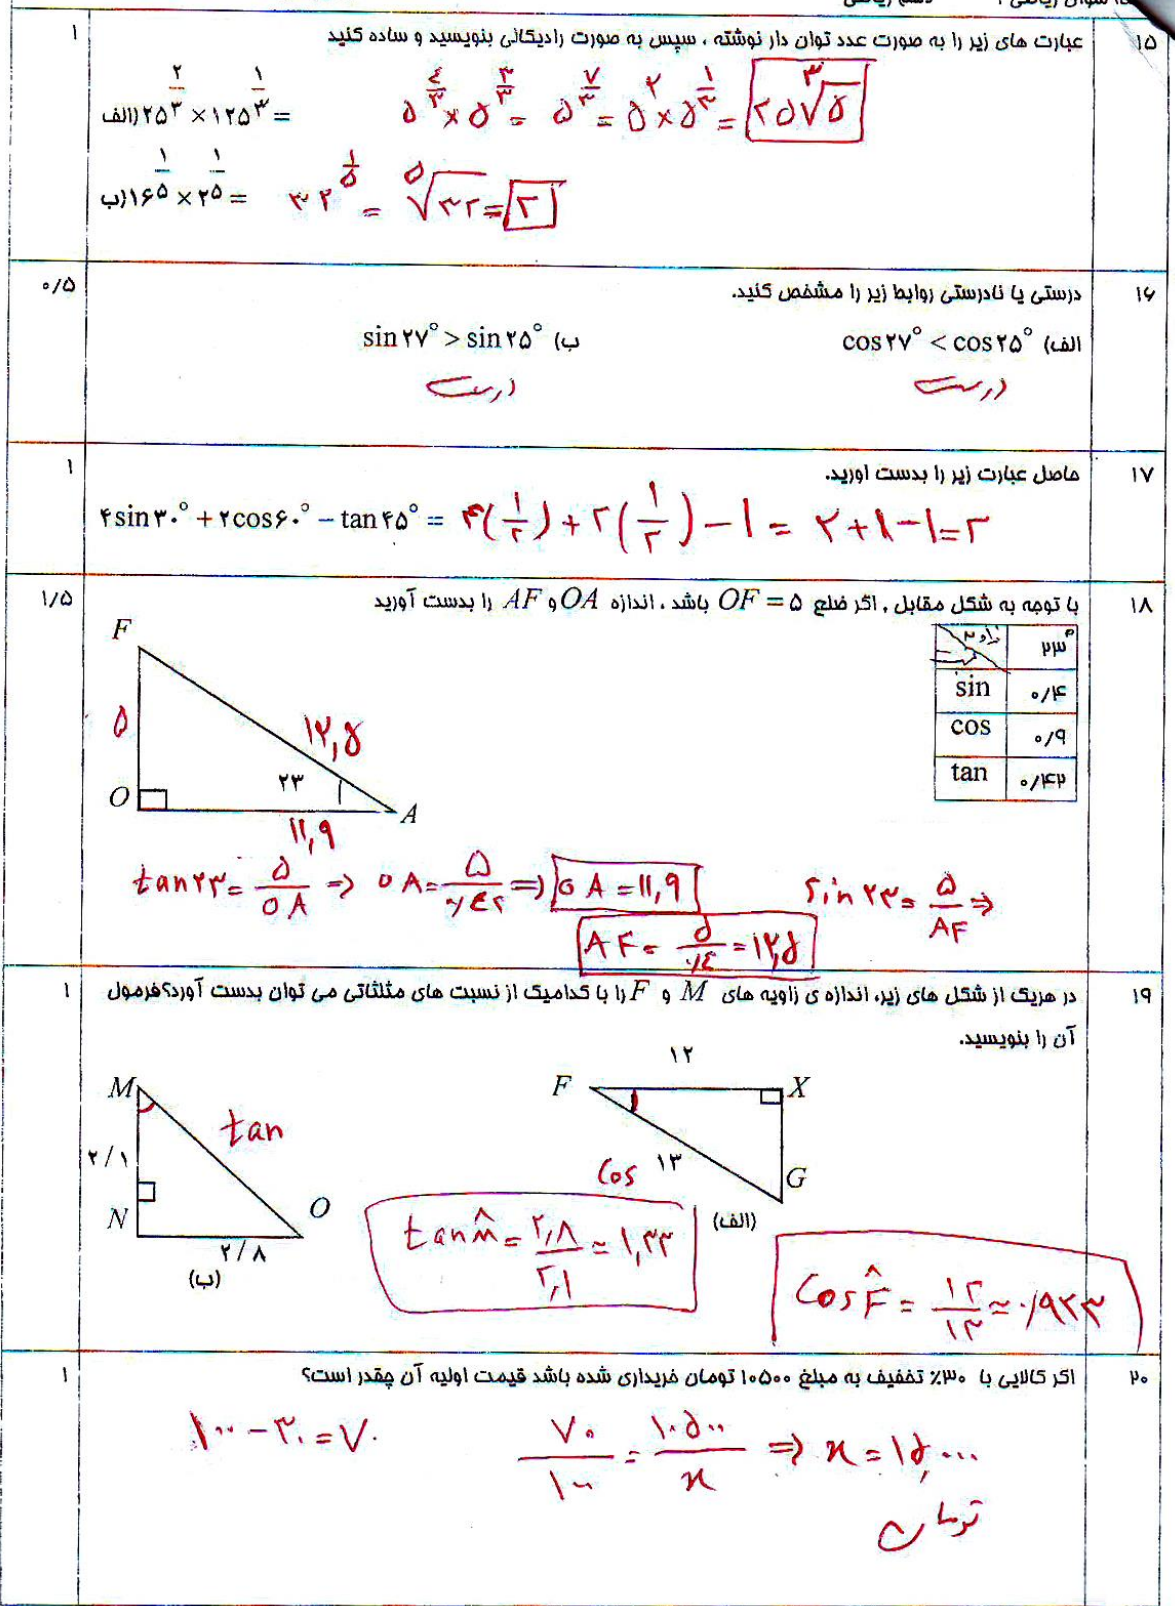 سوال ریاضی ۱ دهم ریاضی
۱۵ عبارت های زیر را به صورت عدد توان دار نوشته ، سپس به صورت رادیکالی بنویسید و ساده کنید ۱
الف) ۲۵^(۲/۳) × ۱۲۵^(۱/۳) = ۵^(۴/۳) × ۵^(۳/۳) = ۵^(۷/۳) = ۵^۲ × ۵^(۱/۳) = ۲۵ ∛۵
ب) ۱۶^(۱/۵) × ۲^(۱/۵) = ۳۲^(۱/۵) = ⁵√۳۲ = ۲
۱۶ درستی یا نادرستی روابط زیر را مشخص کنید. ۰/۵
الف) cos ۲۷° < cos ۲۵° ب) sin ۲۷° > sin ۲۵°
درست درست
۱۷ حاصل عبارت زیر را بدست اورید. ۱
۴ sin ۳۰° + ۲ cos ۶۰° − tan ۴۵° = ۴(۱/۲) + ۲(۱/۲) − ۱ = ۲+۱−۱=۲
۱۸ با توجه به شکل مقابل ، اگر ضلع OF = ۵ باشد ، اندازه OA و AF را بدست آورید ۱/۵
زاویه ۲۳°
sin ۰/۴
cos ۰/۹
tan ۰/۴۲
F
۵ ۱۲,۵
O ۲۳ A
۱۱,۹
tan ۲۳ = ۵/OA ⇒ OA = ۵/۰٫۴۲ ⇒ OA = ۱۱,۹ sin ۲۳ = ۵/AF ⇒
AF = ۵/۰٫۴ = ۱۲,۵
۱۹ در هریک از شکل های زیر، اندازه ی زاویه های M و F را با کدامیک از نسبت های مثلثاتی می توان بدست آورد؟فرمول ۱
آن را بنویسید.
۱۲
F X
cos ۱۳ G
(الف)
cos F̂ = ۱۲/۱۳ ≈ ۰/۹۲۳
M tan
۲/۱
N O
۲/۸
(ب)
tan M̂ = ۲,۸/۲,۱ ≈ ۱,۳۳
۲۰ اگر کالایی با ۳۰٪ تخفیف به مبلغ ۱۰۵۰۰ تومان خریداری شده باشد قیمت اولیه آن چقدر است؟ ۱
۱۰۰ − ۳۰ = ۷۰ ۷۰/۱۰۰ = ۱۰۵۰۰/x ⇒ x = ۱۵,۰۰۰
تومان